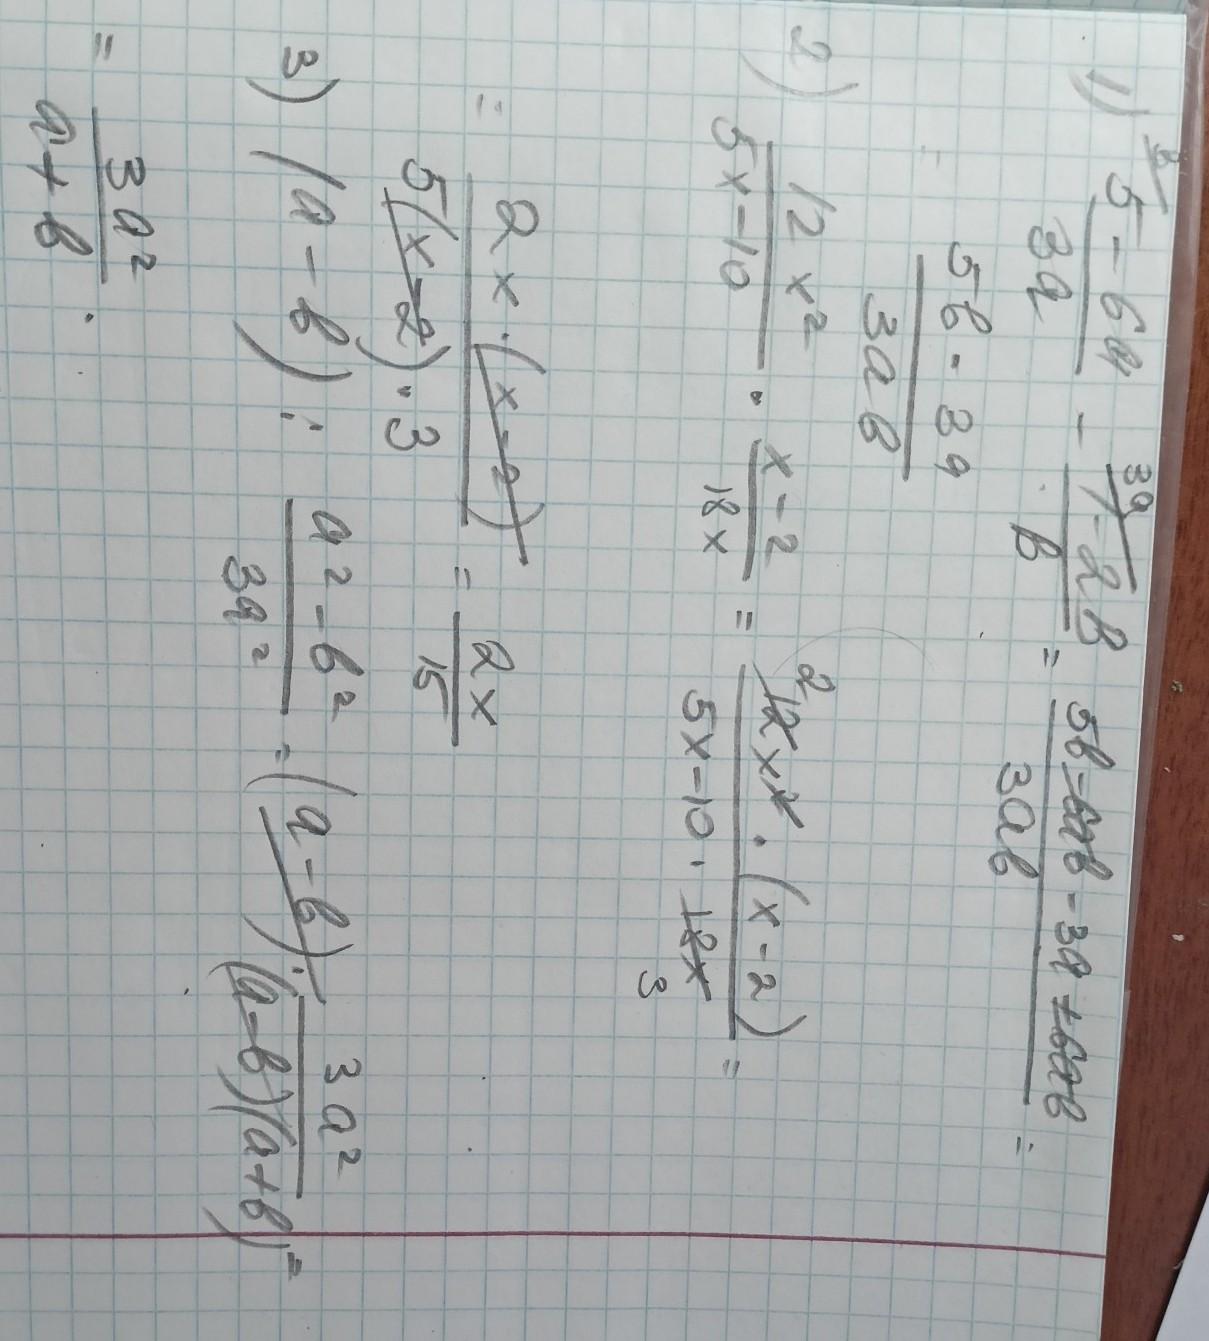 1) (5 - 6a)/(3a) - (1 - 2в)/в = (5в - 6aв - 3a + 6aв)/(3aв) =
= (5в - 3a)/(3aв)
2) (12x²)/(5x - 10) · (x - 2)/(18x) = (12x² · (x - 2))/(5x - 10 · 18x) =
= (2x · (x - 2))/(5(x - 2) · 3) = 2x/15
3) (a - в) : (a² - в²)/(3a²) = (a - в) · (3a²)/((a - в)(a + в)) =
= (3a²)/(a + в).